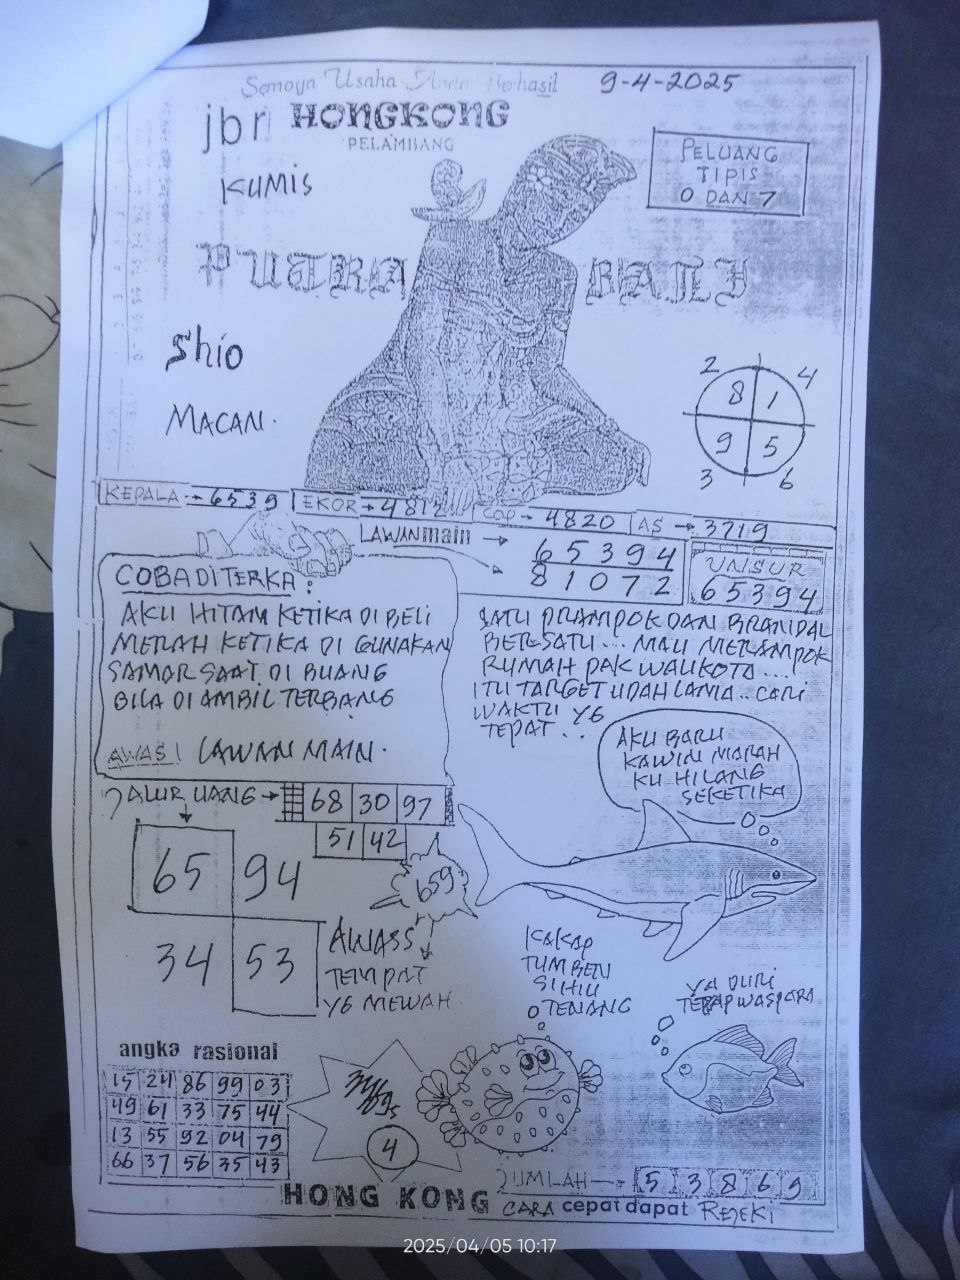 Semoga Usaha Anda Berhasil
9-4-2025
jbr HONGKONG
PELAMBANG
KUMIS
PELUANG
TIPIS
0 DAN 7
PUTRA BALI
Shio
MACAN.
2 4
8 1
9 5
3 6
KEPALA → 6539 EKOR → 481 COP → 4820 AS → 3719
LAWIN main → 65394
81072
UNSUR
65394
COBA DITERKA :
AKU HITAM KETIKA DI BELI
MERAH KETIKA DI GUNAKAN
SAMAR SAAT DI BUANG
BILA DI AMBIL TERBANG
AWAS! LAWAN MAIN.
SATU PRAMPOK DAN BRANDAL
BERSATU... MAU MERAMPOK
RUMAH PAK WALIKOTA....
ITU TARGET UDAH LAMA.. CARI
WAKTU YG
TEPAT...
AKU BARU
KAWIN MARAH
KU HILANG
SEKETIKA
JALUR UANG → 68 30 97
51 42
65 94
34 53
659
AWASS
TEMPAT
YG MEWAH
KAKAP
TUMBEN
SIHIU
TENANG
YA DURI
TETAP WASPADA
angka rasional
15 24 86 99 03
49 61 33 75 44
13 55 92 04 79
66 37 56 35 43
4
JUMLAH → 5 3 8 6 9
HONG KONG CARA cepat dapat REJEKI
2025/04/05 10:17